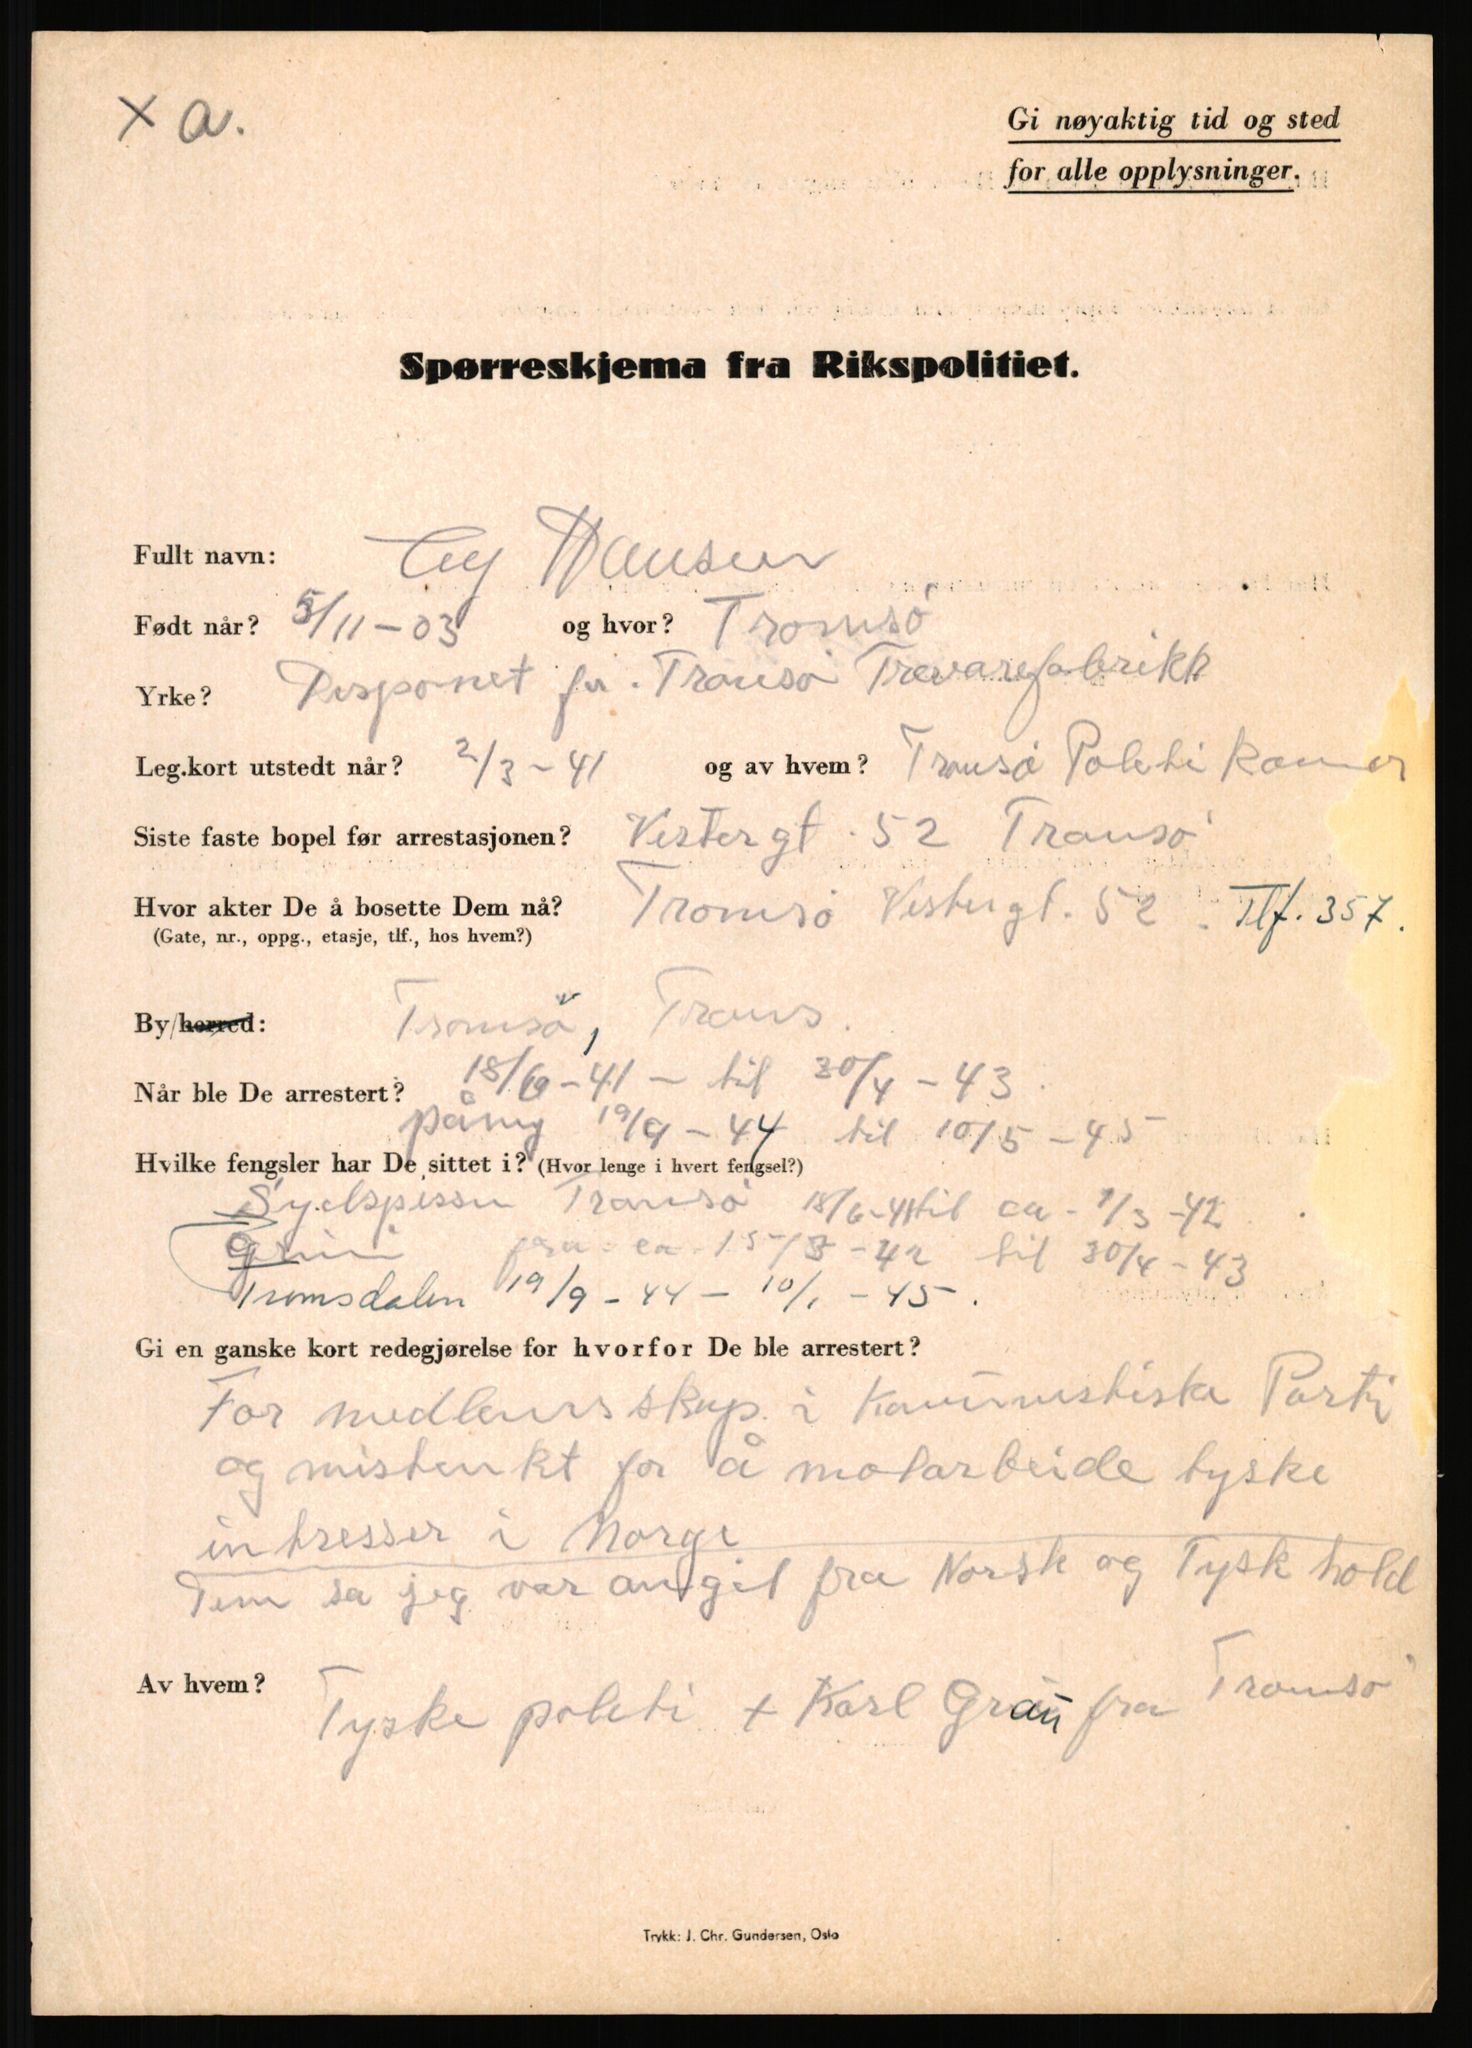 x a.
Gi nøyaktig tid og sted
for alle opplysninger.
Spørreskjema fra Rikspolitiet.
Fullt navn: Hansen
Født når? 5/11-03 og hvor? Tromsø
Yrke? Disponet for. Tromsø Trevarefabrikk
Leg.kort utstedt når? 2/3-41 og av hvem? Tromsø Poleti kamer
Siste faste bopel før arrestasjonen? Vestergt. 52 Tromsø
Hvor akter De å bosette Dem nå? Tromsø Vestergt. 52. Tlf. 357.
(Gate, nr., oppg., etasje, tlf., hos hvem?)
By/herred: Tromsø, Troms.
Når ble De arrestert? 18/6-41 - til 30/4-43.
påny 19/9-44 til 10/5-45
Hvilke fengsler har De sittet i? (Hvor lenge i hvert fengsel?)
Sydspissen Tromsø 18/6-41 til ca. 1/3-42
Grini fra ca. 15/3-42 til 30/4-43
Tromsdalen 19/9-44 - 10/1-45.
Gi en ganske kort redegjørelse for hvorfor De ble arrestert?
For medlemsskap i Kommunistiske Parti
og mistenkt for å motarbeide tyske
intresser i Norge
Dem sa jeg var angit fra Norsk og Tysk hold
Av hvem? Tyske poleti + Karl Gran fra Tromsø
Trykk: J. Chr. Gundersen, Oslo